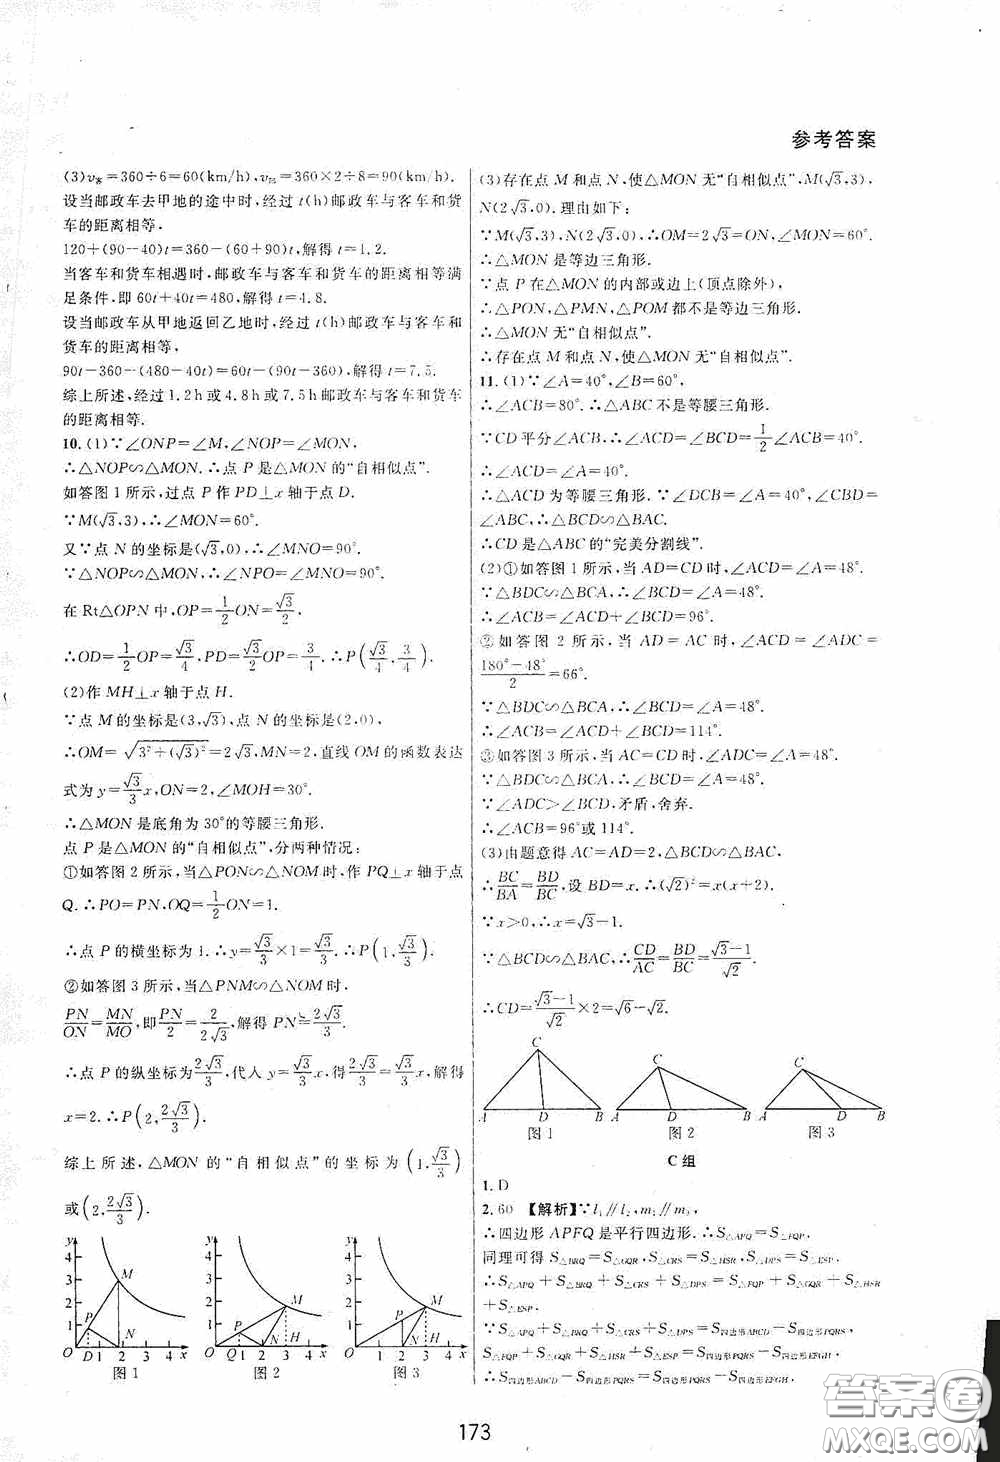 参考答案
(3)v客=360÷6=60(km/h),v邮=360×2÷8=90(km/h).
设当邮政车去甲地的途中时,经过 t(h)邮政车与客车和货
车的距离相等.
120+(90-40)t=360-(60+90)t,解得 t=1.2.
当客车和货车相遇时,邮政车与客车和货车的距离相等满
足条件,即 60t+40t=480,解得 t=4.8.
设当邮政车从甲地返回乙地时,经过 t(h)邮政车与客车和
货车的距离相等,
90t-360-(480-40t)=60t-(90t-360),解得 t=7.5.
综上所述,经过 1.2h 或 4.8h 或 7.5h 邮政车与客车和货车
的距离相等.
10. (1)∵∠ONP=∠M,∠NOP=∠MON,
∴△NOP∽△MON.∴点 P 是△MON 的“自相似点”.
如答图 1 所示,过点 P 作 PD⊥x 轴于点 D.
∵M(√3,3),∴∠MON=60°.
又∵点 N 的坐标是(√3,0),∴∠MNO=90°.
∵△NOP∽△MON,∴∠NPO=∠MNO=90°.
在 Rt△OPN 中,OP=1/2ON=√3/2.
∴OD=1/2OP=√3/4,PD=√3/2OP=3/4.∴P(√3/4,3/4).
(2)作 MH⊥x 轴于点 H.
∵点 M 的坐标是(3,√3),点 N 的坐标是(2,0),
∴OM=√(3²+(√3)²)=2√3,MN=2,直线 OM 的函数表达
式为 y=√3/3x,ON=2,∠MOH=30°.
∴△MON 是底角为 30°的等腰三角形.
点 P 是△MON 的“自相似点”,分两种情况:
①如答图 2 所示,当△PON∽△NOM 时,作 PQ⊥x 轴于点
Q.∴PO=PN,OQ=1/2ON=1.
∴点 P 的横坐标为 1.∴y=√3/3×1=√3/3.∴P(1,√3/3).
②如答图 3 所示,当△PNM∽△NOM 时,
PN/ON=MN/MO,即PN/2=2/2√3,解得 PN=2√3/3.
∴点 P 的纵坐标为2√3/3,代人 y=√3/3x,得2√3/3=√3/3x,解得
x=2.∴P(2,2√3/3).
综上所述,△MON 的“自相似点”的坐标为(1,√3/3)
或(2,2√3/3).
y 4 3 2 1 O D 1 2 3 4 x P M N
图 1
y 4 3 2 1 O Q 1 2 3 4 x P M N H
图 2
y 4 3 2 1 O 1 2 3 4 x P M N H
图 3
(3)存在点 M 和点 N,使△MON 无“自相似点”,M(√3,3),
N(2√3,0).理由如下:
∵M(√3,3),N(2√3,0),∴OM=2√3=ON,∠MON=60°.
∴△MON 是等边三角形.
∵点 P 在△MON 的内部或边上(顶点除外),
∴△PON,△PMN,△POM 都不是等边三角形.
∴△MON 无“自相似点”.
∴存在点 M 和点 N,使△MON 无“自相似点”.
11. (1)∵∠A=40°,∠B=60°,
∴∠ACB=80°.∴△ABC 不是等腰三角形.
∵CD 平分∠ACB,∴∠ACD=∠BCD=1/2∠ACB=40°.
∴∠ACD=∠A=40°.
∴△ACD 为等腰三角形.∵∠DCB=∠A=40°,∠CBD=
∠ABC,∴△BCD∽△BAC.
∴CD 是△ABC 的“完美分割线”.
(2)①如答图 1 所示,当 AD=CD 时,∠ACD=∠A=48°.
∵△BDC∽△BCA,∴∠BCD=∠A=48°.
∴∠ACB=∠ACD+∠BCD=96°.
②如答图 2 所示,当 AD=AC 时,∠ACD=∠ADC=
180°-48°/2=66°.
∵△BDC∽△BCA,∴∠BCD=∠A=48°.
∴∠ACB=∠ACD+∠BCD=114°.
③如答图 3 所示,当 AC=CD 时,∠ADC=∠A=48°.
∵△BDC∽△BCA,∴∠BCD=∠A=48°.
∵∠ADC>∠BCD,矛盾,舍弃.
∴∠ACB=96°或 114°.
(3)由题意得 AC=AD=2,∵△BCD∽△BAC,
∴BC/BA=BD/BC,设 BD=x.∴(√2)²=x(x+2).
∵x>0,∴x=√3-1.
∵△BCD∽△BAC,∴CD/AC=BD/BC=√3-1/√2.
∴CD=√3-1/√2×2=√6-√2.
C A D B
图 1
C A D B
图 2
C A D B
图 3
C 组
1. D
2. 60 【解析】∵l₁∥l₂,m₁∥m₂,
∴四边形 APFQ 是平行四边形.∴S△APQ=S△FQP.
同理可得 S△BRQ=S△GQR,S△CRS=S△HSR,S△DPS=S△ESP.
∴S△APQ+S△BRQ+S△CRS+S△DPS=S△FQP+S△GQR+S△HSR
+S△ESP.
∵S△APQ+S△BRQ+S△CRS+S△DPS=S四边形ABCD-S四边形PQRS,
S△FQP+S△GQR+S△HSR+S△ESP=S四边形PQRS-S四边形EFGH,
∴S四边形ABCD-S四边形PQRS=S四边形PQRS-S四边形EFGH.
173
答案圈
MXQE.COM